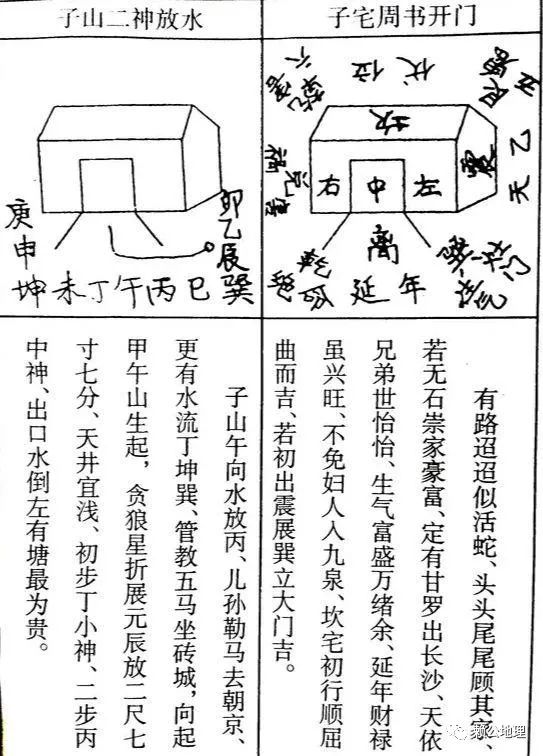 子宅周书开门
伏位
坎
天乙
震
右 中 左
离
延年
有路迢迢似活蛇、头头尾尾顾其家
若无石崇家豪富、定有甘罗出长沙、天依
兄弟世怡怡、生气富盛万绪余、延年财禄
虽兴旺、不免妇人入九泉、坎宅初行顺屈
曲而吉、若初出震展巽立大门吉。
子山二神放水
庚申
卯乙辰
坤未丁午丙巳巽
子山午向水放丙、儿孙勒马去朝京、
更有水流丁坤巽、管教五马坐砖城，向起
甲午山生起，贪狼星折展元辰放二尺七
寸七分、天井宜浅、初步丁小神、二步丙
中神、出口水倒左有塘最为贵。